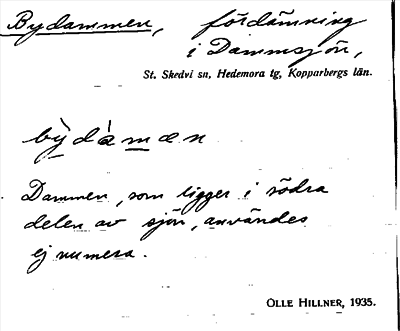 Bydammen, fördämning
i Dammsjön,
St. Skedvi sn, Hedemora tg, Kopparbergs län.
bỳdàmæn
Dammen, som ligger i södra
delen av sjön, användes
ej numera.
OLLE HILLNER, 1935.